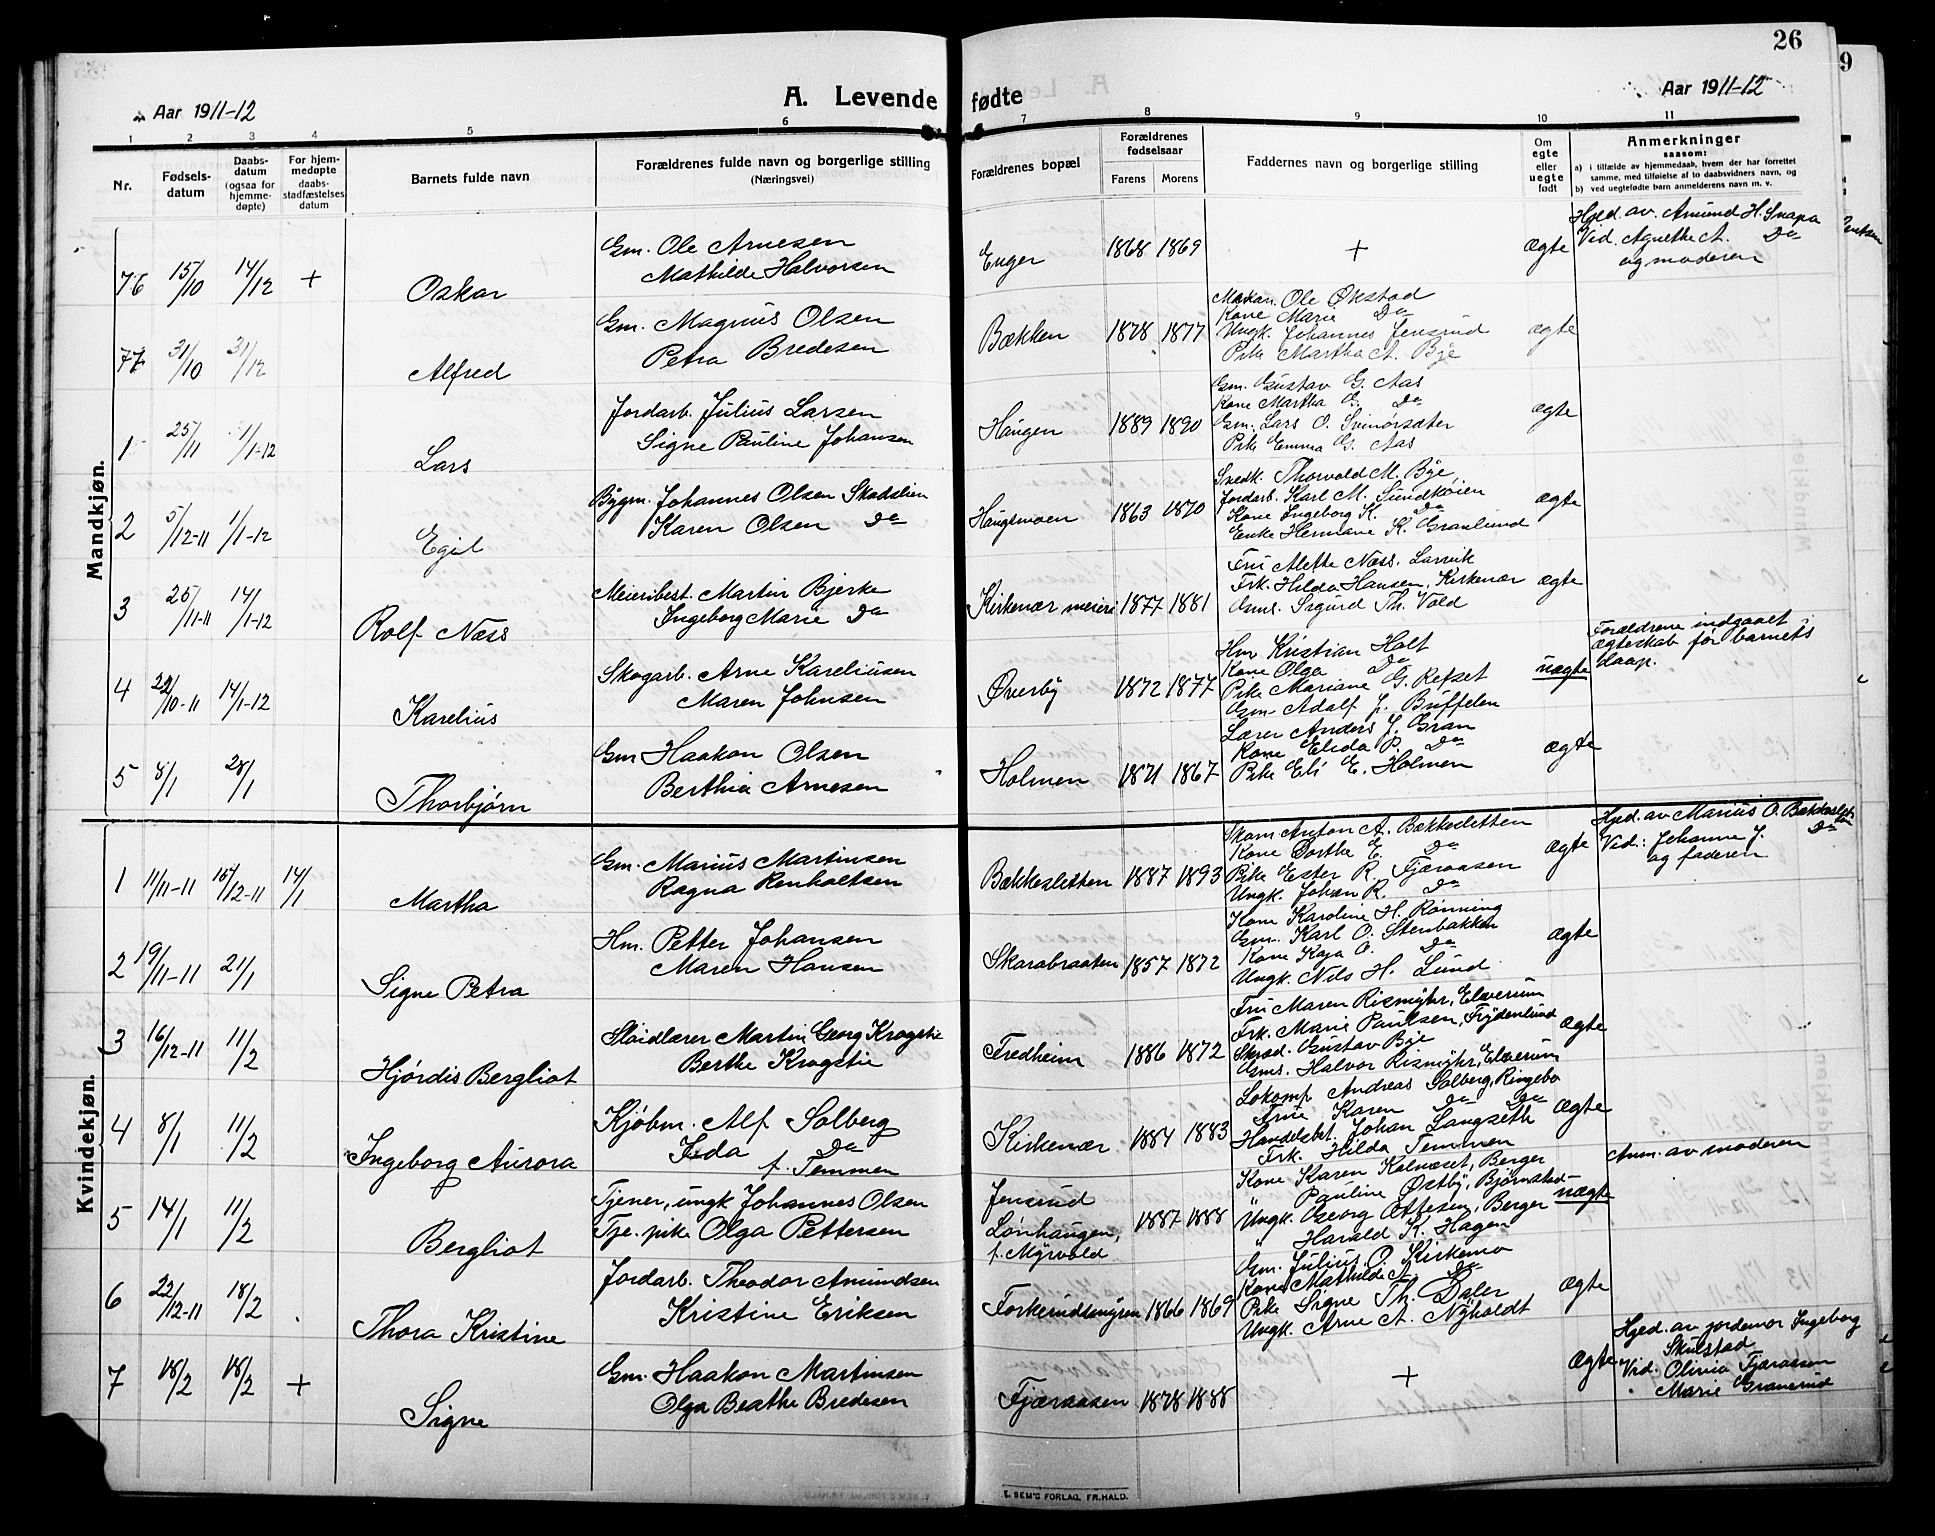 26
Aar 1911-12
A. Levende fødte
Aar 1911-12
1 2 3 4 5 6 7 8 9 10 11
Nr.
Fødsels-
datum
Daabs-
datum
(ogsaa for
hjemme-
døpte)
For hjem-
medøpte
daabs-
stadfæstelses
datum
Barnets fulde navn
Forældrenes fulde navn og borgerlige stilling
(Næringsvei)
Forældrenes bopæl
Forældrenes
fødselsaar
Farens Morens
Faddernes navn og borgerlige stilling
Om
egte
eller
uegte
født
Anmerkninger
saasom:
a) i tilfælde av hjemmedaab, hvem der har forrettet
samme, med tilføielse af to daabsvidners navn, og
b) ved uegtefødte barn anmelderens navn m. v.
Mandkjøn.
76 15/10 14/12 + Oskar
Gm. Ole Arnesen
Mathilde Halvorsen
Enger 1868 1869 + Ægte
Hjed. av. Amund H. Snapa
Vid. Agnethe A. Do
og moderen
77 31/10 31/12 Alfred
Gm. Magnus Olsen
Petra Bredesen
Bækken 1878 1877
Maskin. Ole Økstad
Kone Marie Do
Ungk. Johannes Jensrud
Pike Martha A. Bye
ægte
1 25/11 1/1-12 Lars
Jordarb. Julius Larsen
Signe Pauline Johansen
Haugen 1889 1890
Gm. Gustav G. Aas
Kone Martha G. Do
Gm. Lars O. Svinørsæter
Pike Emma G. Aas
ægte
2 5/12-11 1/1-12 Egil
Bygm. Johannes Olsen Skadslien
Karen Olsen Do
Haugsmoen 1863 1870
Snedk. Thorvald M. Bye
Jordarb. Karl M. Sundkøien
Kone Ingeborg K. Do
Enke Hermane K. Granlund
ægte
3 25/11-11 14/1-12 Rolf Næss
Meieribest. Martin Bjerke
Ingeborg Marie Do
Kirkenær meieri 1877 1881
Fru Alette Næss. Larvik
Frk. Hilda Hansen, Kirkenær
Gms. Sigurd Th. Vold
ægte
4 22/10-11 14/1-12 Karelius
Skogarb. Arne Kareliussen
Maren Johnsen
Øverby 1872 1877
Hm Kristian Holt
Kone Olga Do
Pike Mariane G. Refset
Gm. Adolf J. Buffelen
uægte
Forældrene indgaaet
ægteskab før barnets
daap.
5 8/1 28/1 Thorbjørn
Gm Haakon Olsen
Berthia Arnesen
Holmen 1871 1867
Lærer Anders J. Gran
Kone Elida P. Do
Pike Eli E. Holmen
ægte
Kvindekjøn.
1 11/11-11 15/12-11 14/1 Martha
Gm. Marius Martinsen
Ragna Renholtsen
Bækkesletten 1887 1893
Skom Anton A. Bækkesletten
Kone Dorthe E. Do
Pike Ester R. Fjæraasen
Ungk. Johan R. Do
ægte
Hjed. av Marius O. Bækkesletten
Vid.: Johanne J. Do
og faderen
2 19/11-11 21/1 Signe Petra
Hm. Petter Johansen
Maren Hansen
Skarabraaten 1857 1872
Kone Karoline H. Rønning
Gm. Karl O. Stenbakken
Kone Kaja O. Do
Ungk. Nils H. Lund
ægte
3 16/12-11 11/2 Hjørdis Bergliot
Sløidlærer Martin Georg Krogstie
Berthe Krogstie
Fredheim 1886 1872
Fru Maren Rismyhr, Elverum
Frk. Marie Paulsen, Frydenlund
Skræd. Gustav Bye
Gms. Halvor Rismyhr, Elverum
ægte
4 8/1 11/2 Ingeborg Aurora
Kjøbm. Alf Solberg
Ieda Do
f. Temmen
Kirkenær 1884 1883
Lokomf Andreas Solberg, Ringebo
Frue Karen Do Do
Handelsbet. Johan Langseth
Frk. Hilda Temmen
ægte
5 14/1 11/2 Bergliot
Tjener, ungk Johannes Olsen
Tje. pike Olga Pettersen
Jensrud
Lønhaugen,
f. Myrvold
1887 1888
Kone Karen Kolnæset, Berger
" Pauline Østby, Bjørnstad
Ungk. Georg Ottesen, Berger
" Harald K. Hagen
uægte
Anm. av moderen
6 22/12-11 18/2 Thora Kristine
Jordarb. Theodor Amundsen
Kristine Eriksen
Forkerudmyren 1866 1869
Gm. Julius O. Kirkemo
Kone Mathilde A. Do
Pike Signe Th. Daler
Ungk. Arne A. Nyholdt
ægte
7 18/2 18/2 + Signe
Gm. Haakon Martinsen
Olga Beathe Bredesen
Fjæraasen 1878 1888 + ægte
Hjed. av jordemor Ingeborg
Skulstad
Vid. Olivia Fjæraasen
Marie Granerud
E. SEM'S FORLAG, FR.HALD.